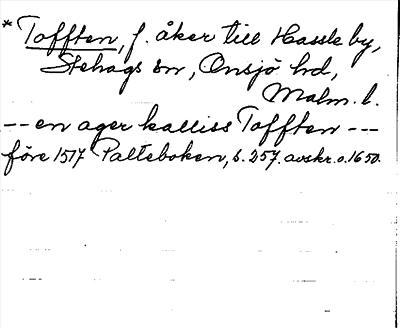 * Tofften, f. åker till Hassle by,
Stehags sn, Onsjö hd,
Malm. l.
-- en ager kalliss Tofften ---
före 1517 Palteboken, s. 257. avskr. o. 1650.